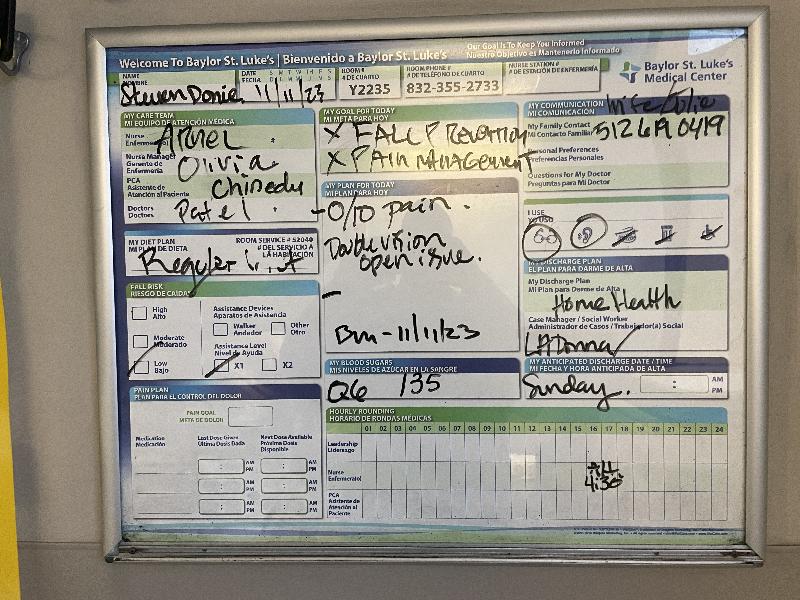 Welcome To Baylor St. Luke's | Bienvenido a Baylor St. Luke's
Our Goal Is To Keep You Informed
Nuestro Objetivo es Mantenerlo Informado
NAME
NOMBRE
Steven
DATE
FECHA
S M T W T H F S
D L M M J V S
11/11/23
ROOM #
# DE CUARTO
Y2235
ROOM PHONE #
# DE TELÉFONO DE CUARTO
832-355-2733
NURSE STATION #
# DE ESTACIÓN DE ENFERMERÍA
Baylor St. Luke's
Medical Center
MY CARE TEAM
MI EQUIPO DE ATENCIÓN MÉDICA
Nurse
Nurse Manager
Gerente de
Enfermería
Olivia
PCA
Asistente de
Atención al Paciente
Chinedu
Doctors
Doctores
Patel
MY GOAL FOR TODAY
MI META PARA HOY
X FALL PREVENTION
X PAIN MANAGEMENT
MY COMMUNICATION
MI COMUNICACIÓN
Wife Julie
My Family Contact
Mi Contacto Familiar
512 619 0419
Personal Preferences
Preferencias Personales
Questions for My Doctor
Preguntas para Mi Doctor
MY PLAN FOR TODAY
MI PLAN PARA HOY
- 0/10 pain.
Double vision
open issue.
-
Bm - 11/11/23
I USE
YO USO
MY DIET PLAN
MI PLAN DE DIETA
ROOM SERVICE # 52040
# DEL SERVICIO A
LA HABITACIÓN
Regular
FALL RISK
RIESGO DE CAÍDAS
High
Alto
Moderate
Moderado
Low
Bajo
Assistance Devices
Aparatos de Asistencia
Walker
Andador
Other
Otro
Assistance Level
Nivel de Ayuda
X1
X2
MY DISCHARGE PLAN
EL PLAN PARA DARME DE ALTA
My Discharge Plan
Mi Plan para Darme de Alta
Home Health
Case Manager / Social Worker
Administrador de Casos / Trabajador(a) Social
LADonna
MY BLOOD SUGARS
MIS NIVELES DE AZÚCAR EN LA SANGRE
Q6 135
MY ANTICIPATED DISCHARGE DATE / TIME
MI FECHA Y HORA ANTICIPADA DE ALTA
Sunday.
:
AM
PM
PAIN PLAN
PLAN PARA EL CONTROL DEL DOLOR
PAIN GOAL
META DE DOLOR
Medication
Medicación
Last Dose Given
Última Dosis Dada
Next Dose Available
Próxima Dosis
Disponible
: AM PM : AM PM
: AM PM : AM PM
: AM PM : AM PM
HOURLY ROUNDING
HORARIO DE RONDAS MÉDICAS
01 02 03 04 05 06 07 08 09 10 11 12 13 14 15 16 17 18 19 20 21 22 23 24
Leadership
Liderazgo
Nurse
Enfermera(o)
4:30
PCA
Asistente de
Atención al
Paciente